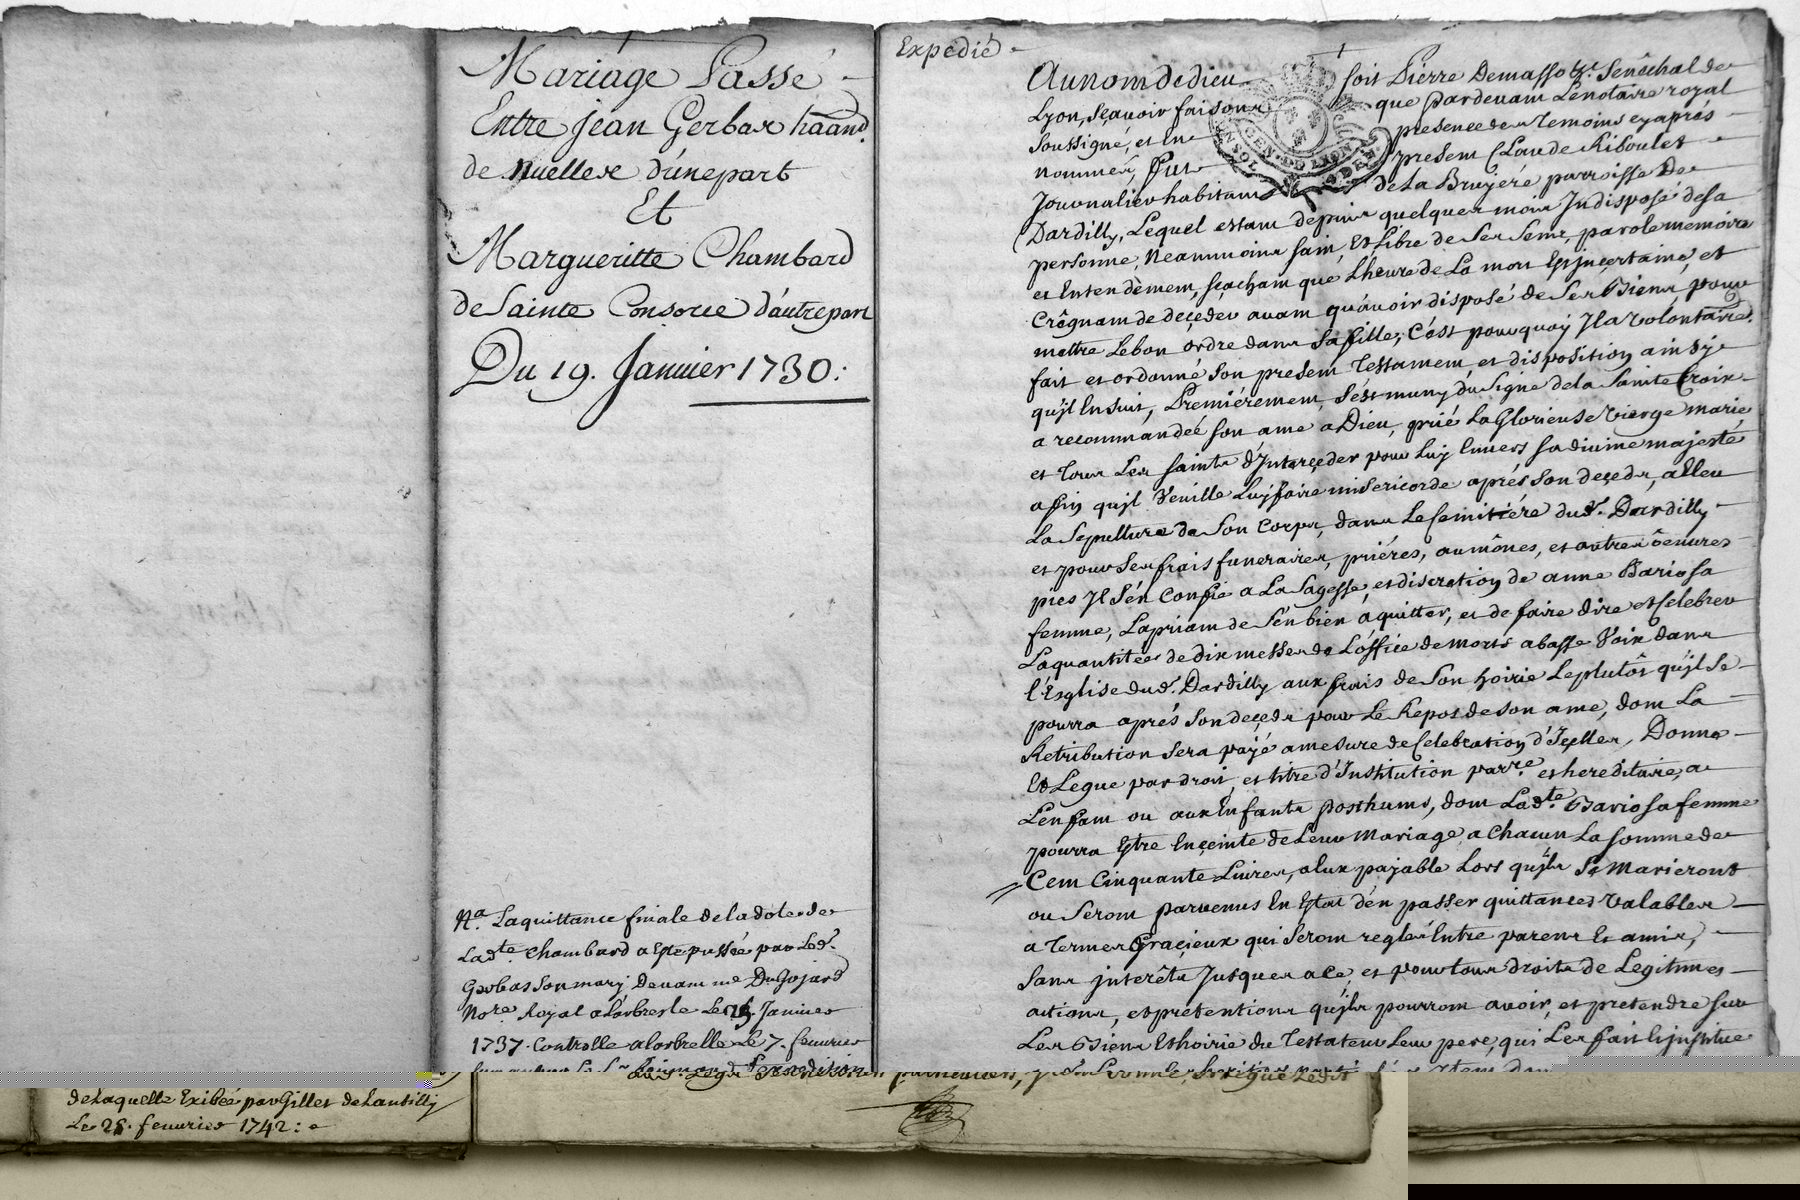 Mariage Passé
Entre Jean Gerbas
de Nuelles d'une part
Et
Margueritte Chambard
de Sainte Consorce d'autre part
Du 19. Janvier 1730:
Na. La quittance finale de la dote de
Ladte. Chambard a esté passée par Led.
Gerbas son mary devant me Dugojard
Nore. Royal a Larbresle Le Janvier
1737. Controllé a Larbrelle Le 7. fevrier
de Laquelle Exibée par Gillet de Lantilly
Le 28. fevrier 1742:
Expedié
Au nom de dieu soit Pierre Demasso Senéchal de
Lyon, sçavoir faisons que Pardevant Le notaire royal
soussigné, et en presence des temoins cy aprés
nommés, fut present Claude Riboulet
Journalier habitant de La Bruyere parroisse De
Dardilly, Lequel estant depuis quelques mois Indisposé de sa
personne, Neanmoins sain, Et Libre de Ses Sens, parole memoire
et Entendèment, sçachant que L'heure de La mort Est incertaine, et
Crègnant de deçeder avant qu'avoir disposé de Ses Biens pour
mettre Le bon ordre dans Sa fille, C'ést pourquoy Il a volontaire.
fait et ordonné son present Testament, et disposition ainsy
qu'il Ensuit, Premiérement, S'ést muny du Signe de la Sainte Croix
a recommandeé son ame a Dieu, prié La Glorieuse Vierge marie
et Tous Les saints d'Interçeder pour Luy Envers sa divine majesté
afin qu'il Veuille Luy faire misericorde aprés son deçeds, a Eleu
La Sepulture de Son Corps, dans Le semitiére dud. Dardilly
et pour Ses frais funeraires, priéres, aumônes, et autres ôeuvres
pies Il S'en Confie a La Sagesse, et discretion de anne Bario sa
femme, La priant de S'en bien aquitter, et de faire dire et Celebrer
La quantitée de dix messes de L'office de morts a basse Voix dans
l'Esglise dud. Dardilly aux frais de Son hoirie Le plutôt qu'il Se
pourra aprés Son deçeds pour Le Repos de son ame, dont La
Retribution Sera payé a mesure de Celebration d'Icelles, Donne
Et Legue par droit, et titre d'Institution parre. et hereditaire, a
L'enfant ou aux Enfants posthums, dont Ladte. Bario sa femme
pourra Estre Enceinte de Leur Mariage, a Chacun La somme de
Cent Cinquante Livres, a Eux payable Lors qu'ils Se Marieront
ou Seront parvenus En Estat d'en passer quittances valables
a Termes Gracieux qui Seront reglés Entre parens Et amis,
Sans interêts Jusques a ce, et pour tous droits de Legitimes
actions, et pretentions qu'ils pourront avoir, et pretendre sur
Les Biens Et hoirie du Testateur Leur pere, qui Les fait Et institue